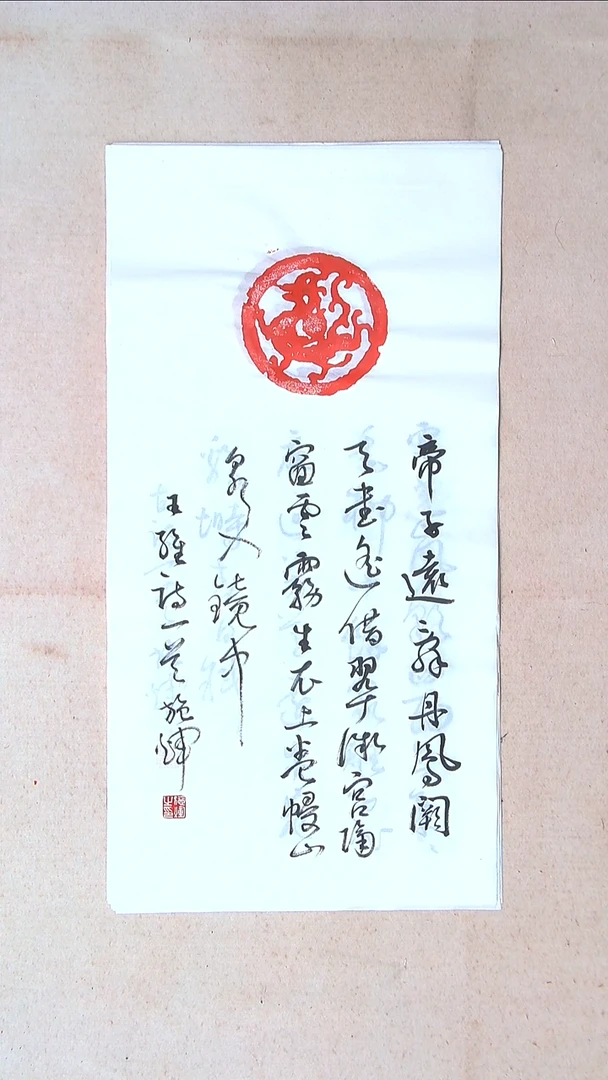 帝子遠辭丹鳳闕
天書遙借翠微宮隔
窗雲霧生衣上卷幔山
泉入鏡中
王維詩一首施輝